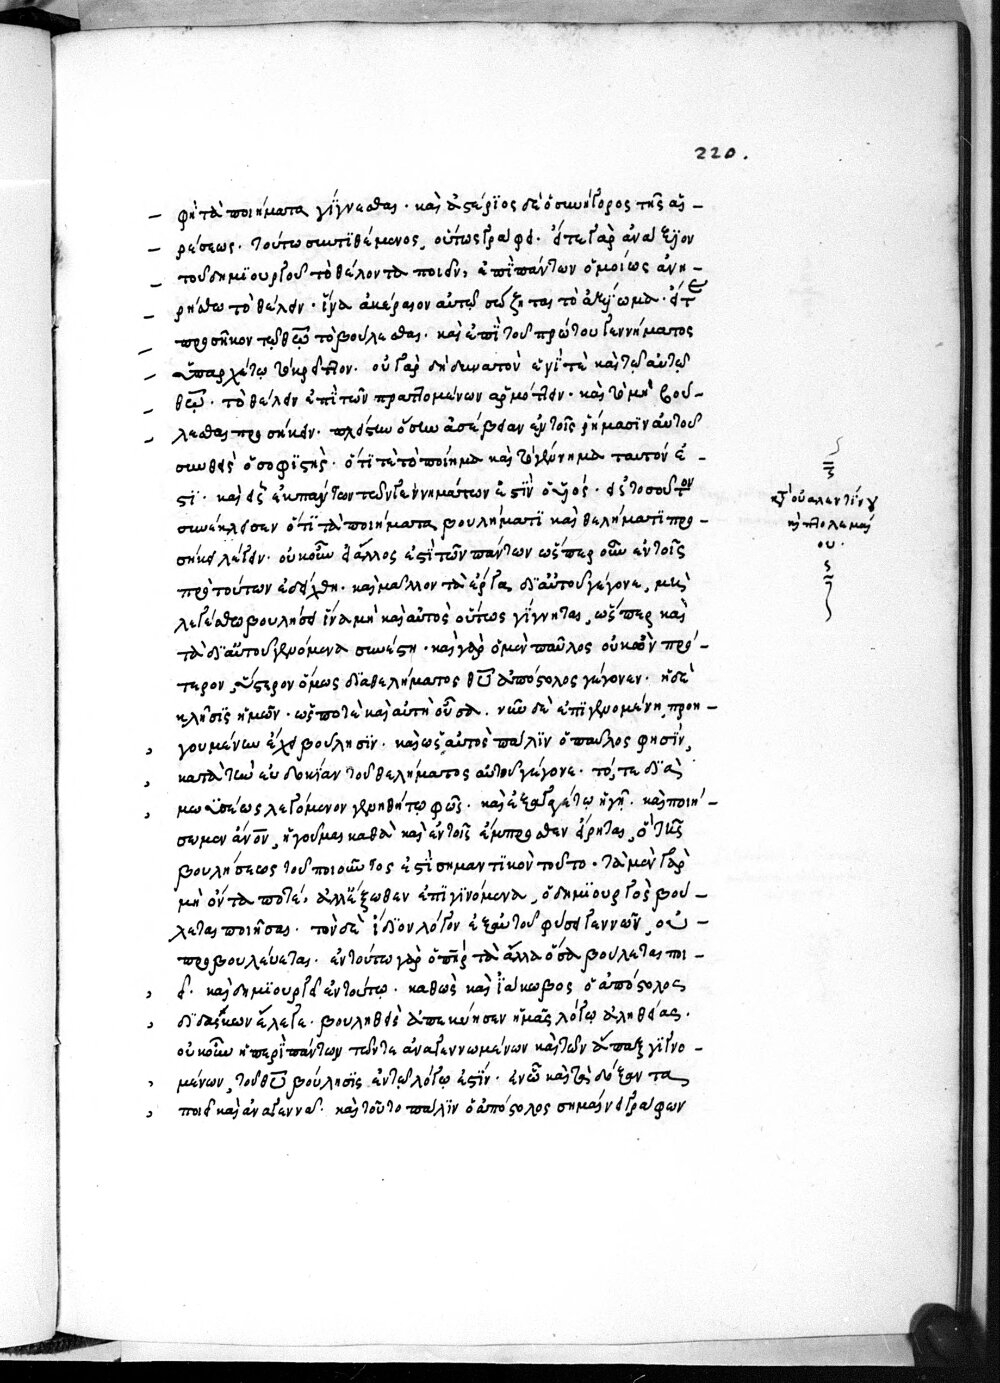 220.
φῆ τὰ ποιήματα γίγνεσθαι. καὶ ἀστέριος δὲ ὁ συνήγορος τῆς αἱ-
ρέσεως. τούτω συντιθέμενος, οὕτως γράφει. εἴτε γὰρ ἀνάξιον
τοῦ δημιουργοῦ τὸ θέλοντα ποιεῖν, ἐπὶ πάντων ὁμοίως ἀνη-
ρήσθω τὸ θέλειν. ἵνα ἀκέραιον αὐτῷ σώζηται τὸ ἀξίωμα. εἴτε
προσῆκον τῷ θεῷ τὸ βούλεσθαι. καὶ ἐπὶ τοῦ πρώτου γεννήματος
ὑπαρχέτω τὸ κρεῖττον. οὐ γὰρ δὴ δυνατὸν ἑνί τε καὶ τῷ αὐτῷ
θεῷ. τὸ θέλειν ἐπὶ τῶν πραττομένων ἁρμόττειν. καὶ τὸ μὴ βού-
λεσθαι προσήκειν. πλείστην ὅσην ἀσέβειαν ἐν τοῖς ῥήμασιν αὐτοῦ
συνθεὶς ὁ σοφιστής. ὅτι τε τὸ ποίημα καὶ τὸ γέννημα ταυτόν ἐ-
στι. καὶ εἷς ἐκ πάντων τῶν γεννημάτων ἐστὶν ὁ υἱός. εἰς τοσοῦτον
συνέκλεισεν ὅτι τὰ ποιήματα βουλήματι καὶ θελήματι προ-
σήκει λέγειν. οὐκοῦν εἰ ἄλλος ἐστὶ τῶν πάντων ὥσπερ οὖν ἐν τοῖς
πρὸ τούτων ἐδείχθη. καὶ μᾶλλον τὰ ἔργα δι αὐτοῦ γέγονε, μὴ
λεγέσθω βουλήσει ἵνα μὴ καὶ αὐτὸς οὕτως γίγνηται, ὥσπερ καὶ
τὰ δι αὐτοῦ γενόμενα συνέστη. καὶ γὰρ ὁ μὲν παῦλος οὐκ ὢν πρό-
τερον, ὕστερον ὅμως διὰ θελήματος θεοῦ ἀπόστολος γέγονεν. ἡ δὲ
κλῆσις ἡμῶν. ὥς ποτε καὶ αὐτὴ οὖσα. νῦν δὲ ἐπιγενομένη, προη-
γουμένην ἔχει βούλησιν. καὶ ὡς αὐτὸς πάλιν ὁ παῦλος φησίν,
κατὰ τὴν εὐδοκίαν τοῦ θελήματος αὐτοῦ γέγονε. τό, τε διὰ
μωϋσέως λεγόμενον γενηθήτω φῶς. καὶ ἐξαγαγέτω ἡ γῆ. καὶ ποιή-
σωμεν ἄνθρωπον, ἡγοῦμαι καθὰ καὶ ἐν τοῖς ἔμπροσθεν εἴρηται, ὅτι τῆς
βουλήσεως τοῦ ποιοῦντος ἐστὶ σημαντικὸν τοῦτο. τὰ μὲν γὰρ
μὴ ὄντα ποτέ, ἀλλ ἔξωθεν ἐπιγινόμενα, ὁ δημιουργὸς βου-
λεται ποιῆσαι. τὸν δὲ ἴδιον λόγον ἐξ αὐτοῦ φύσει γεννῶν, οὐ
προβουλεύεται. ἐν τούτω γὰρ ὁ πατὴρ τὰ ἄλλα ὅσα βούλεται ποι-
εῖ. καὶ δημιουργεῖ ἐν τούτω. καθὼς καὶ ἰάκωβος ὁ ἀπόστολος
διδάσκων ἔλεγε. βουληθεὶς ἀπεκύησεν ἡμᾶς λόγῳ ἀληθείας.
οὐκοῦν ἡ περὶ πάντων τῶν τε ἀναγεννωμένων καὶ τῶν ἅπαξ γιγνο-
μένων, τοῦ θεοῦ βούλησις ἐν τῷ λόγῳ ἐστίν. ἐν ᾧ καὶ τὰ δόξαντα
ποιεῖ καὶ ἀναγεννᾷ. καὶ τοῦτο πάλιν ὁ ἀπόστολος σημαίνει γράφων
οὐαλεντίνου
πτολεμαί
ου.